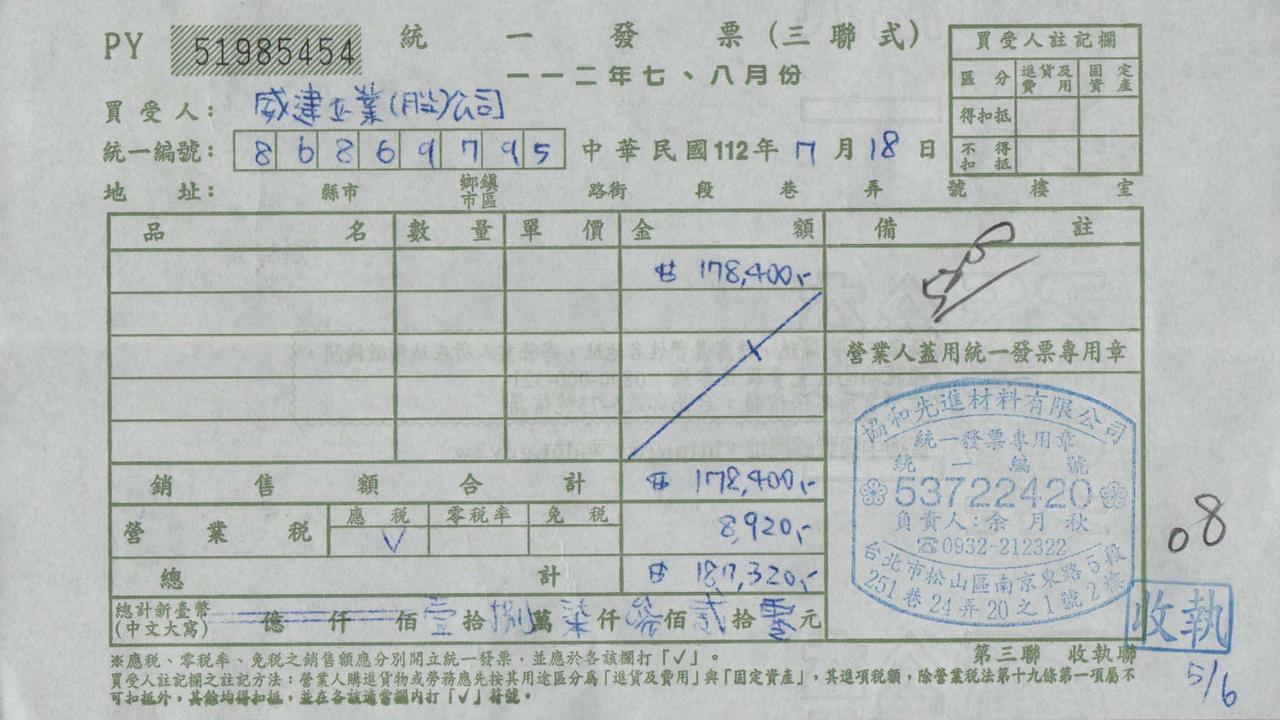 PY 51985454 統一發票(三聯式)
一一二年七、八月份
買受人: 威建立業(股)公司
統一編號: 86869795 中華民國112年7月18日
地址: 縣市 鄉鎮市區 路街 段 巷 弄 號 樓 室
買受人註記欄
區分 進貨及費用 固定資產
得扣抵
不得扣抵
品名 數量 單價 金額 備註
$ 178,400.-
營業人蓋用統一發票專用章
銷售額合計 $ 178,400.-
營業稅 應稅 零稅率 免稅 8,920.-
V
總計 $ 187,320.-
總計新臺幣(中文大寫) 億 仟 佰 壹 拾 捌 萬 柒 仟 參 佰 貳 拾 零 元
協和先進材料有限公司
統一發票專用章
統一編號
53722420
負責人:余月秋
☎0932-212322
台北市松山區南京東路5段
251巷24弄20之1號2樓
08
收執
5/6
第三聯 收執聯
※應稅、零稅率、免稅之銷售額應分別開立統一發票,並應於各該欄打「√」。
買受人註記欄之註記方法:營業人購進貨物或勞務應先按其用途區分為「進貨及費用」與「固定資產」,其進項稅額,除營業稅法第十九條第一項屬不
可扣抵外,其餘均得扣抵,並在各該適當欄內打「√」符號。